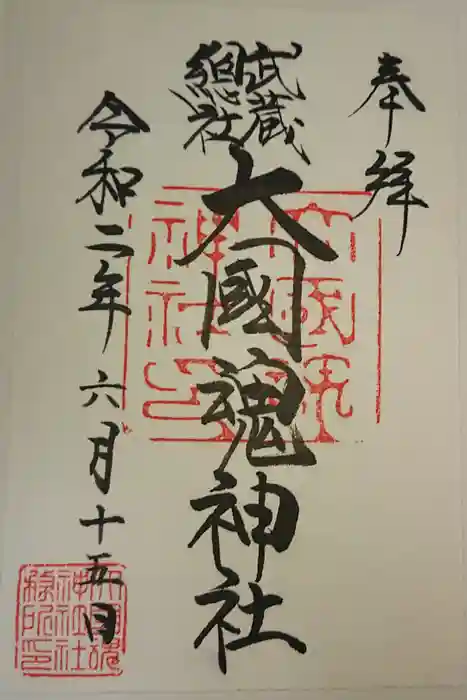 奉拝
武蔵
總社
大國魂神社
令和二年六月十五日
大國魂
神社印
大國魂
神社社
務所印